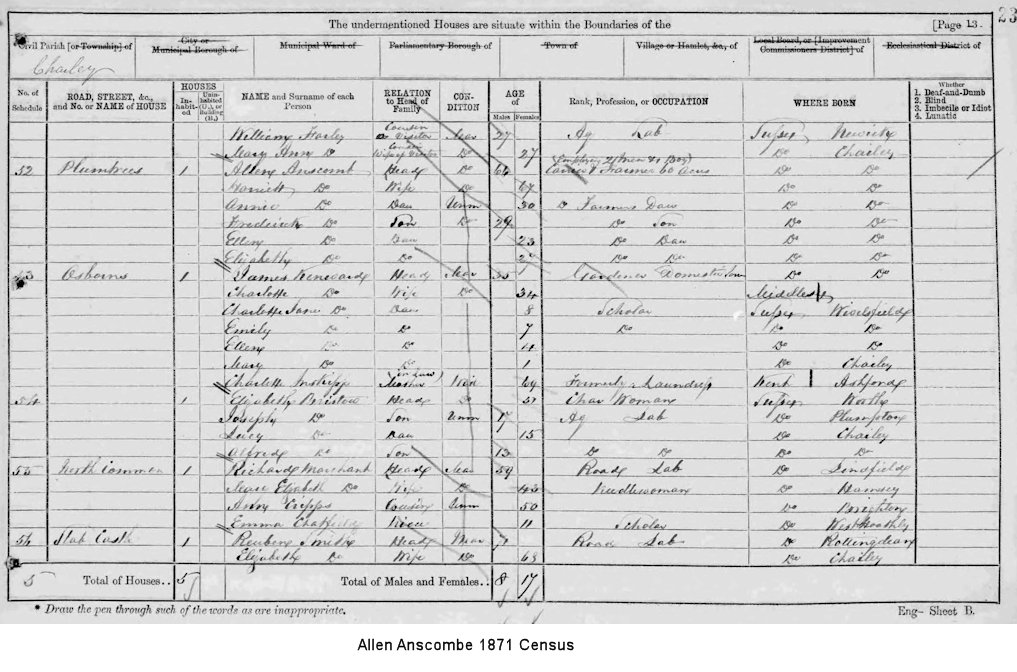 23
The undermentioned Houses are situate within the Boundaries of the [Page 13.
Civil Parish [or Township] of City or Municipal Borough of Municipal Ward of Parliamentary Borough of Town of Village or Hamlet, &c., of Local Board, or [Improvement Commissioners District] of Ecclesiastical District of
Chailey
No. of Schedule ROAD, STREET, &c., and No. or NAME of HOUSE HOUSES Inhabited Uninhabited (U.), or Building (B.) NAME and Surname of each Person RELATION to Head of Family CONDITION AGE of Males Females Rank, Profession, or OCCUPATION WHERE BORN Whether 1. Deaf-and-Dumb 2. Blind 3. Imbecile or Idiot 4. Lunatic
William Cousin Visitor Mar 27 Ag Lab Sussex Newick
Mary Ann Do Wife of Visitor Do 27 Do Chailey
52 Plumtrees 1 Allen Anscomb Head Do Farmer 60 acres Do Do
Do Wife Do 67 Do Do
Annie Do Dau Unm 30 Farmers Dau Do Do
Frederick Do Son Do 29 Do Son Do Do
Ellen Do Dau 23 Do Dau Do Do
Elizabeth Do Do Do Do Do Do
53 Osborns 1 James Head Mar 35 Gardener Domestic Do Do
Charlotte Do Wife Do 34 Middlesex
Charlotte Jane Do Dau 8 Scholar Sussex Wivelsfield
Emily Do Do 7 Do Do Do
Ellen Do Do 4 Do Do
Mary Do Do 1 Do Chailey
Charlotte Mother in Law Wid 69 Formerly Laundress Kent Ashford
54 Elizabeth Bristow Head Do 51 Char Woman Sussex Worth
Joseph Do Son Unm 17 Ag Lab Do Plumpton
Lucy Do Dau 15 Do Chailey
Alfred Do Son 13 Do Do Do Do
55 North Common 1 Richard Marchant Head Mar 59 Road Lab Do Lindfield
Elizabeth Do Wife Do 43 Needlewoman Do Hamsey
Ann Cripps Cousin Unm 50 Do Brighton
Emma Niece 11 Scholar Do West Hoathly
56 Slab Castle 1 Reuben Smith Head Mar 71 Road Lab Do Rottingdean
Elizabeth Do Wife Do 68 Do Chailey
5 Total of Houses.. 5 Total of Males and Females.. 8 17
* Draw the pen through such of the words as are inappropriate. Eng- Sheet B.
Allen Anscombe 1871 Census